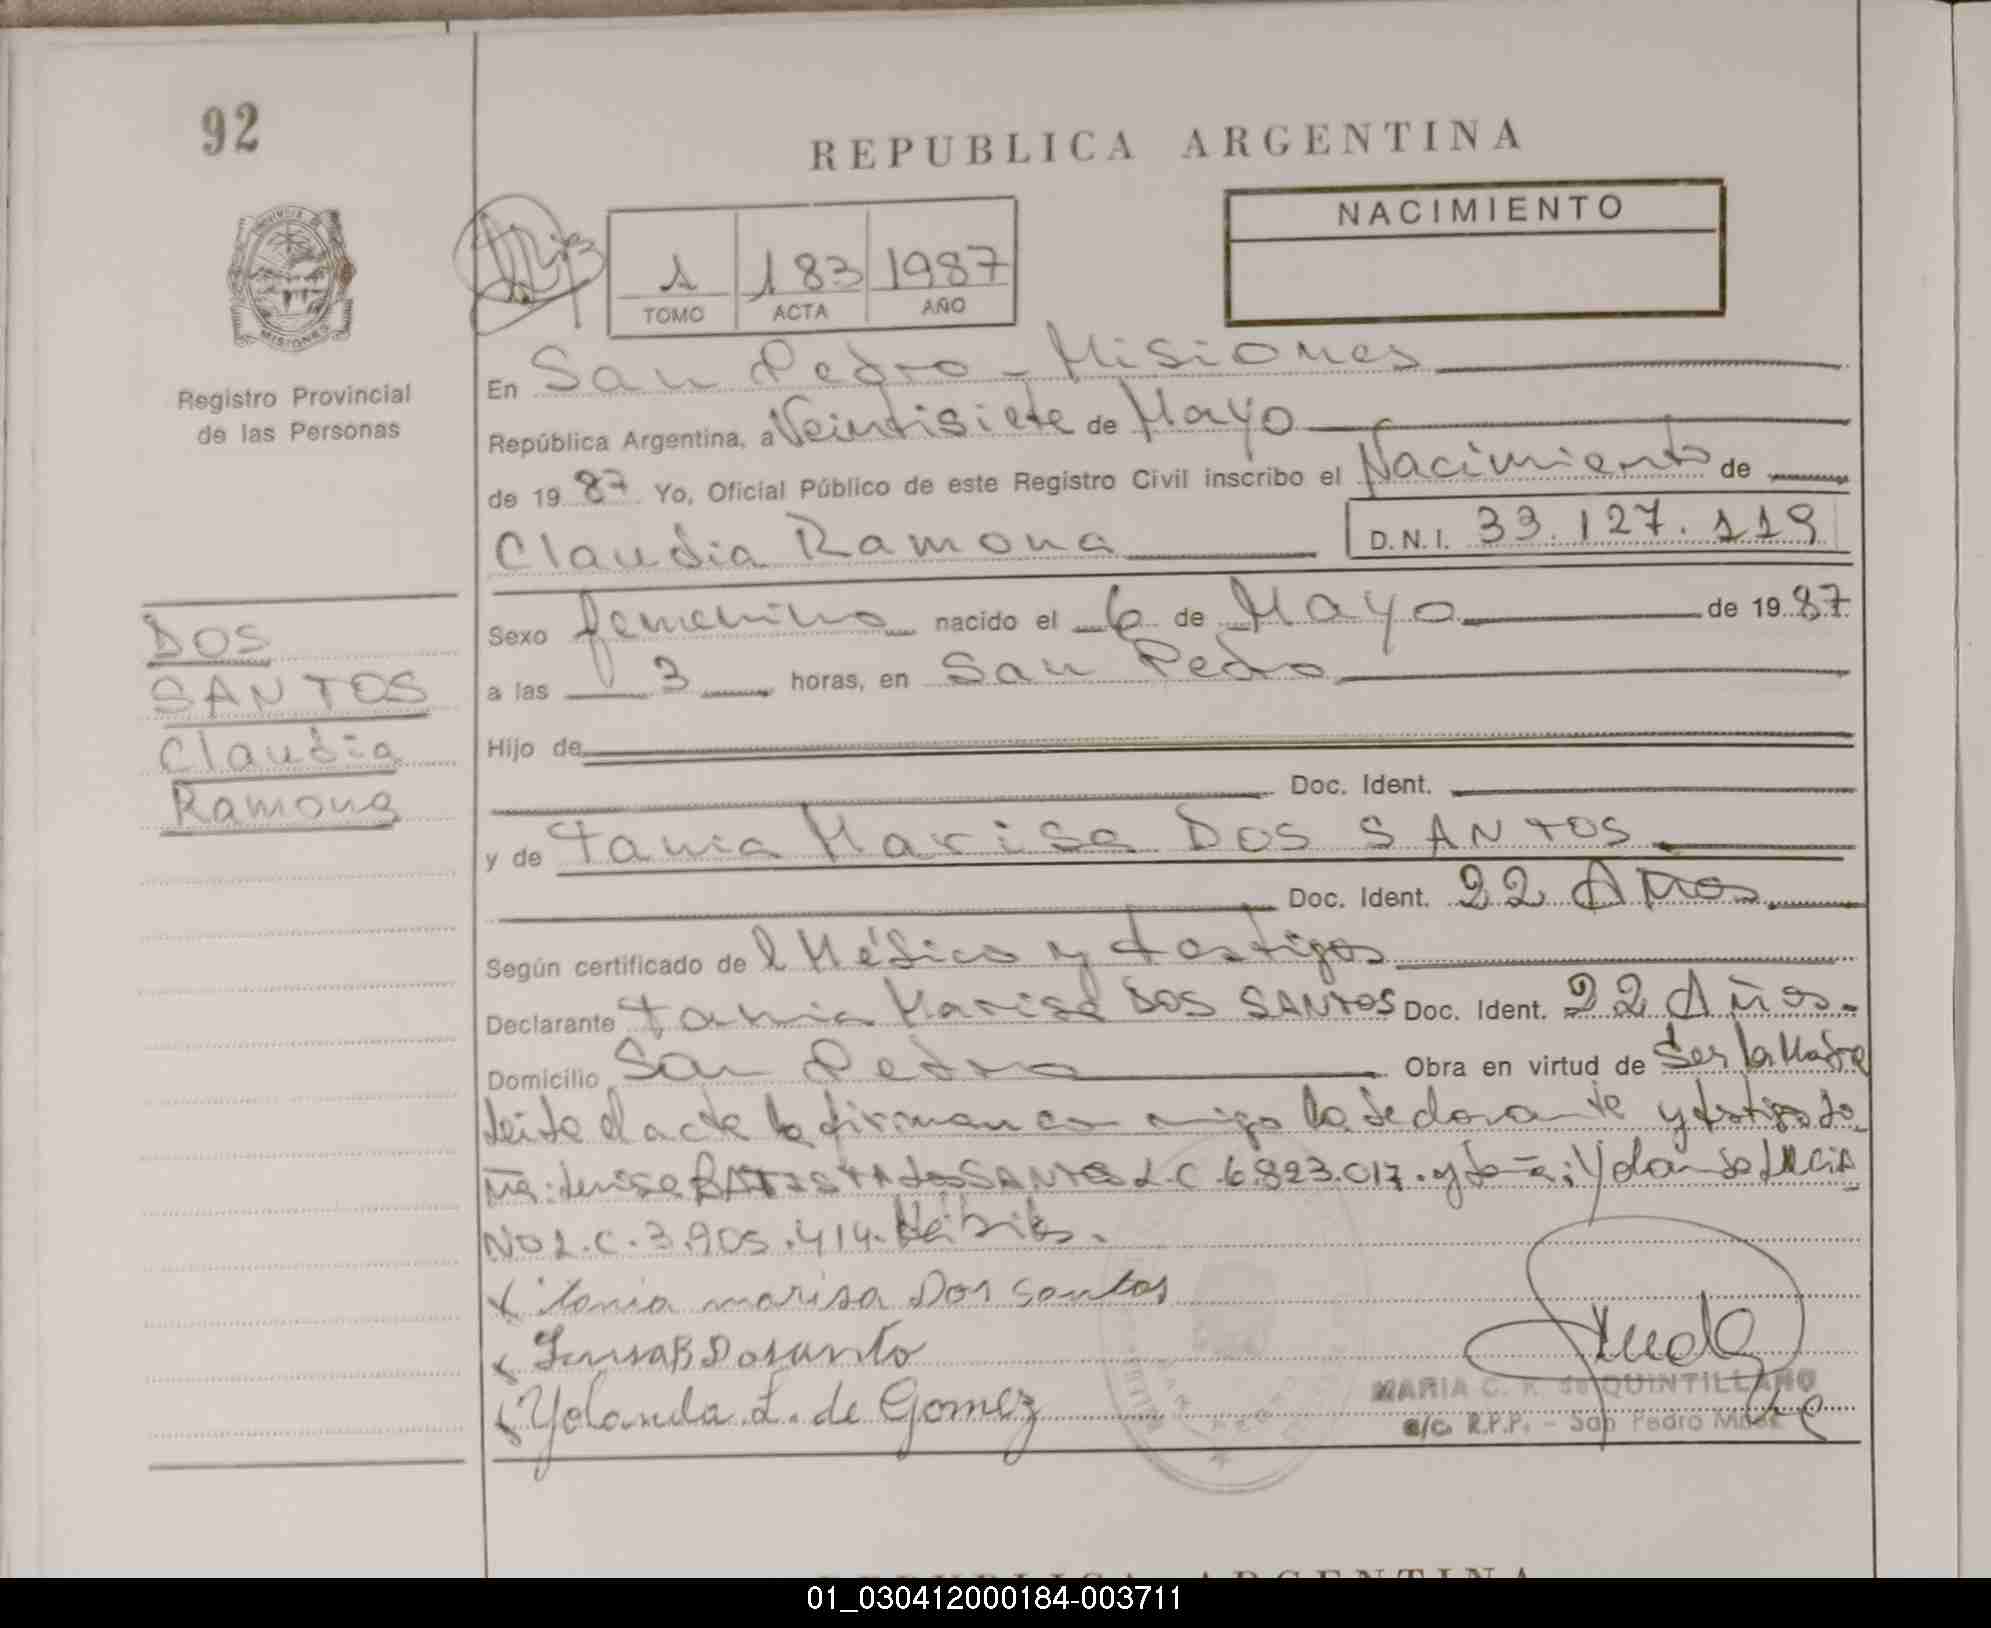 92
REPUBLICA ARGENTINA
NACIMIENTO
1 183 1987
TOMO ACTA AÑO
MISIONES
Registro Provincial
de las Personas
En San Pedro - Misiones
República Argentina, a Veintisiete de Mayo
de 19 87 Yo, Oficial Público de este Registro Civil inscribo el Nacimiento de
Claudia Ramona D.N.I. 33.127.119
DOS
SANTOS
Claudia
Ramona
Sexo femenino nacido el 6 de Mayo de 19 87
a las 3 horas, en San Pedro
Hijo de
Doc. Ident.
y de Tania Marisa DOS SANTOS
Doc. Ident. 22 Años
Según certificado de l Médico y testigos
Declarante Tania Marisa DOS SANTOS Doc. Ident. 22 Años.
Domicilio San Pedro Obra en virtud de Ser la Madre
leida el acta la firman con migo la y testigo do
ña: BATISTA dos SANTOS L.C. 6.823.017. y Yolanda
NO L.C. 3.905.414. Hábiles.
x Tania marisa Dos Santos
x
x Yolanda L. de Gomez
MARIA C. R. de QUINTILLANO
a/c. R.P.P. - San Pedro Mnes
REPUBLICA ARGENTINA
01_030412000184-003711